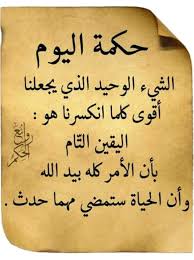 حكمة اليوم
الشيء الوحيد الذي يجعلنا
أقوى كلما انكسرنا هو :
اليقين التّام
بأن الأمر كله بيد الله
وأن الحياة ستمضي مهما حدث .